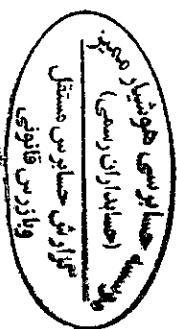 موسسه حسابرسی هوشیار ممیز
(حسابداران رسمی)
گزارش حسابرس مستقل
و بازرس قانونی